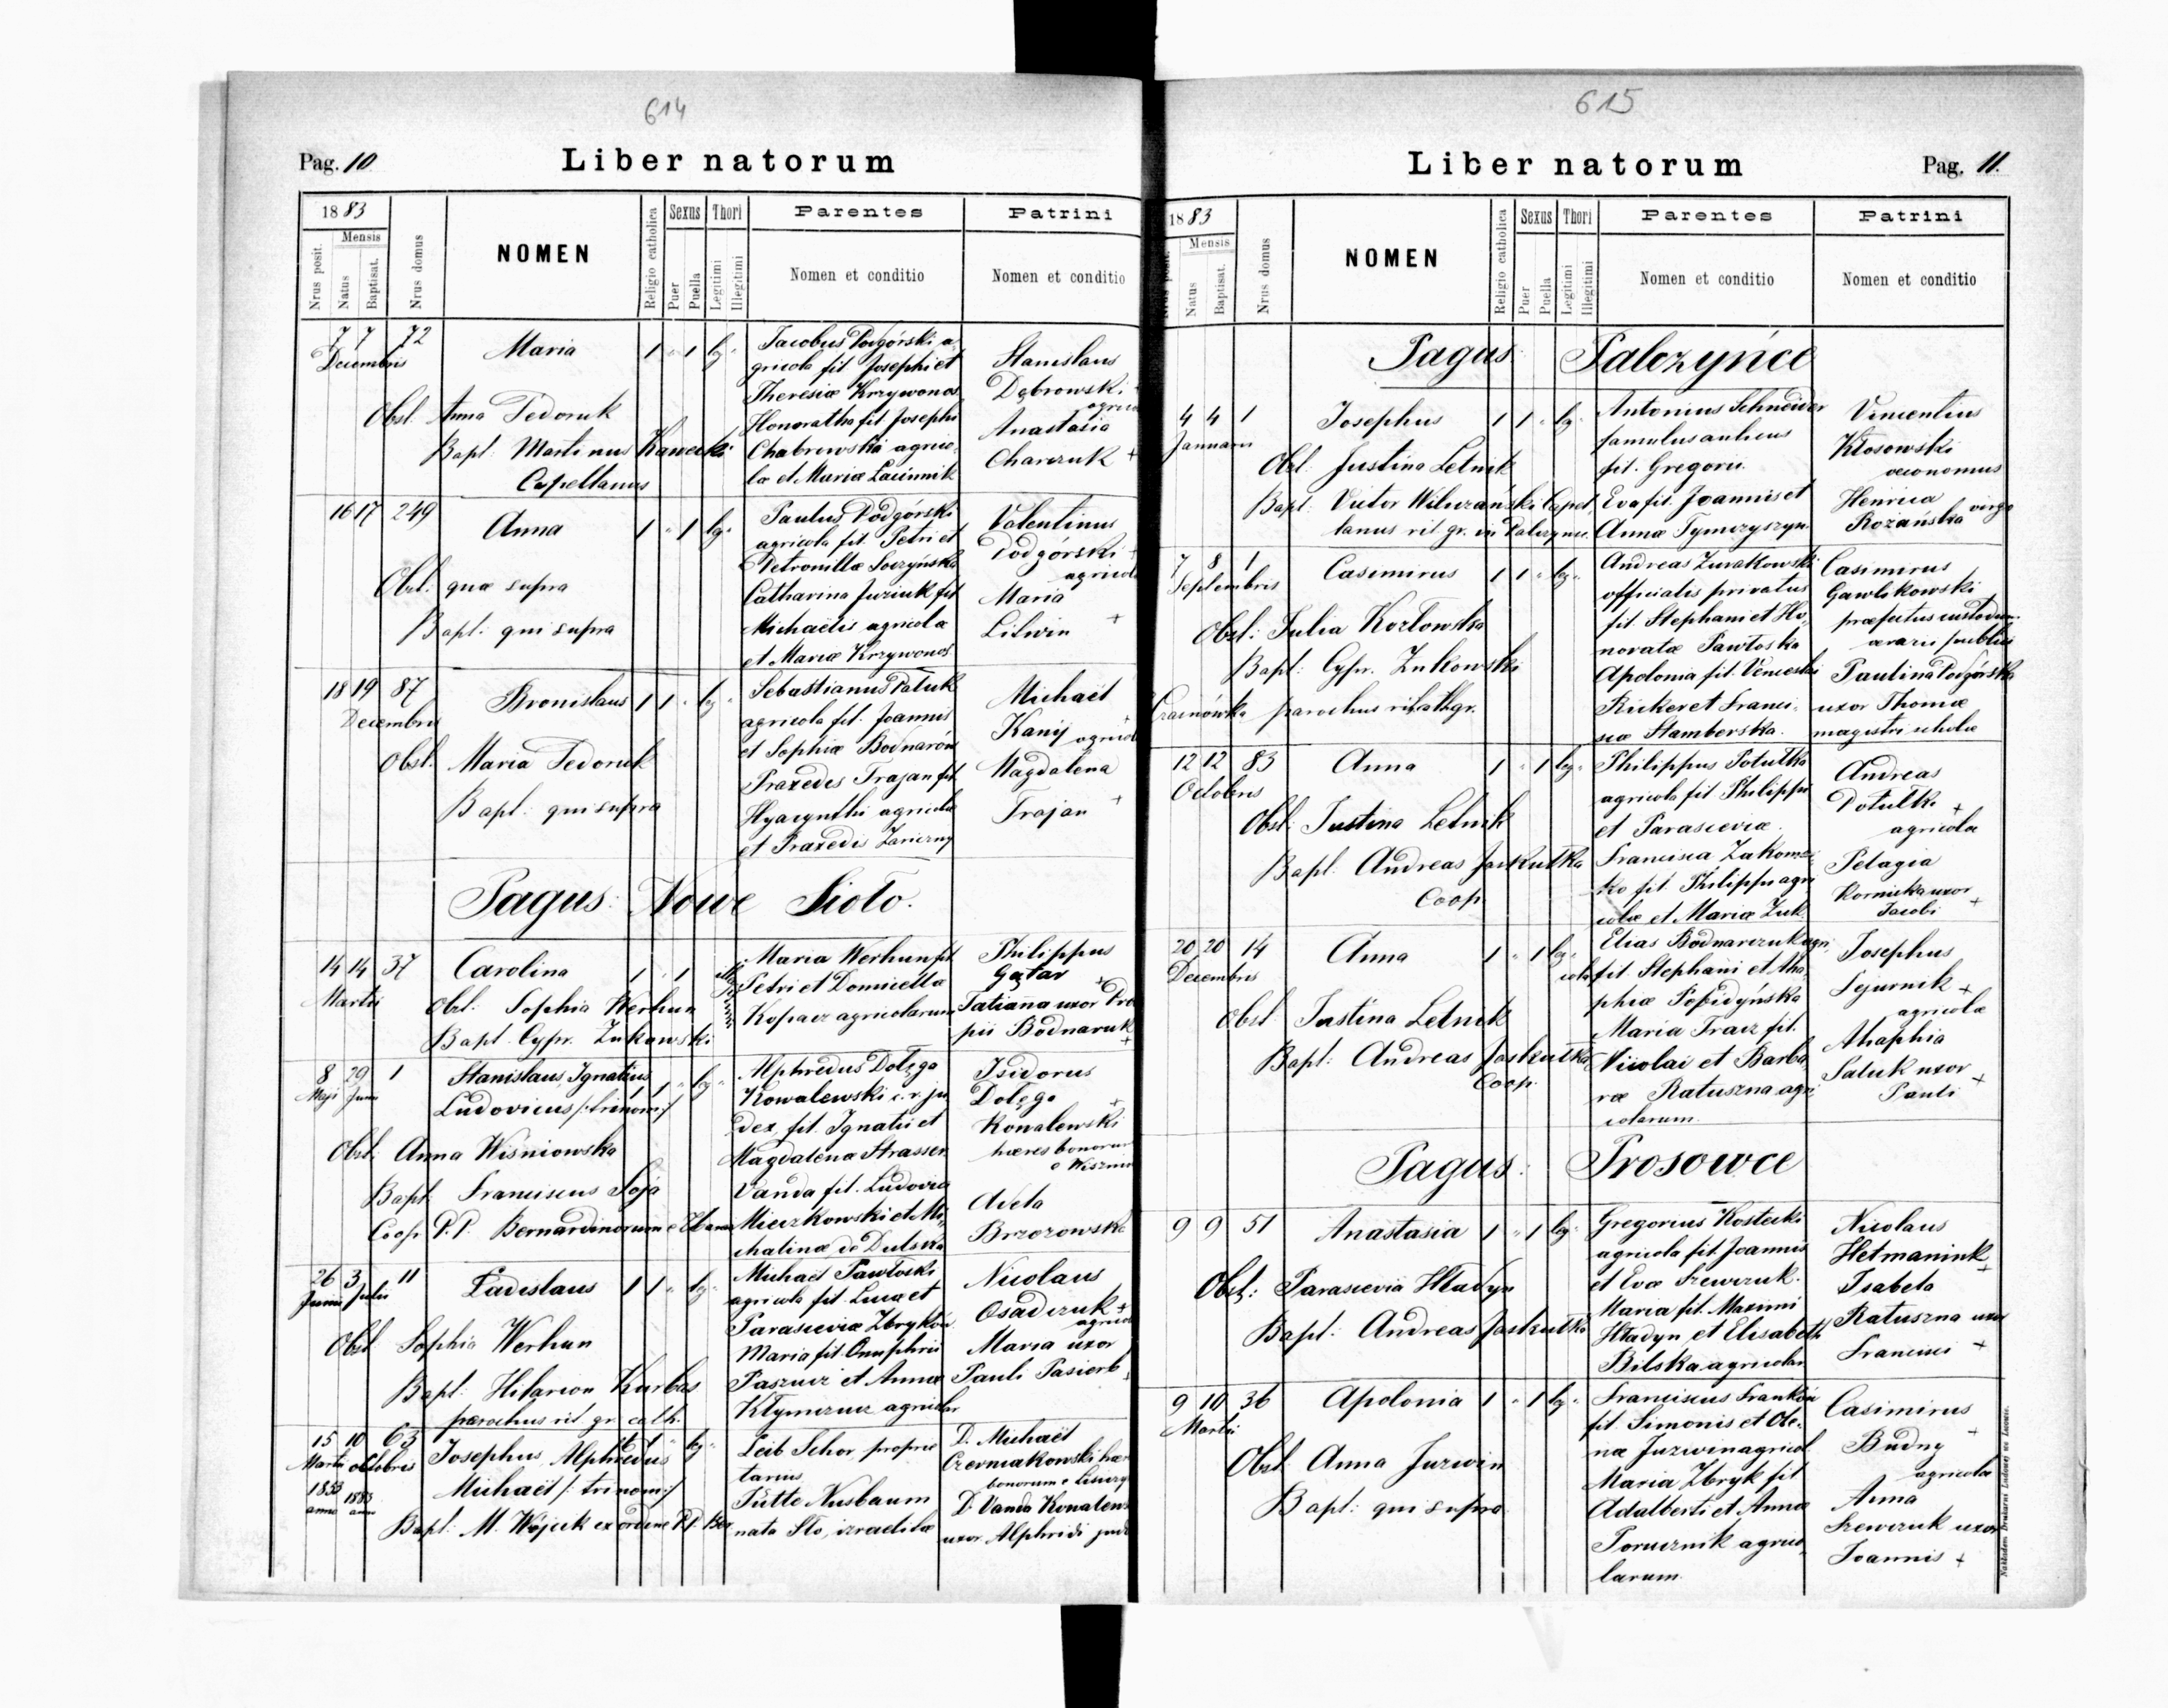 614
Pag. 10
Liber natorum
1883
Mensis
Nrus posit.
Natus
Baptisat.
Nrus domus
NOMEN
Religio catholica
Sexus
Puer
Puella
Thori
Legitimi
Illegitimi
Parentes
Nomen et conditio
Patrini
Nomen et conditio
7 7 72 Maria 1 " 1 leg.
Decembris
Obst. Anna Fedoruk
Bapt. Martinus Kawecki
Capellanus
Jacobus Podgórski a-
gricola fil. Josephi et
Theresiæ Krzywonos
Honoratha fil. Josephi
Chabrowski agrico-
læ et Mariæ
Stanislaus
Dąbrowski +
Anastasia
Charczuk +
16 17 249 Anna 1 " 1 leg.
Obst. quæ supra
Bapt. qui supra
Paulus Podgórski
agricola fil. Petri et
Petronillæ Soczyńska
Catharina Juziuk fil.
Michaëlis agricolæ
et Mariæ Krzywonos
Valentinus
Podgórski +
agricola
Maria
Litwin +
18 19 87 Bronislaus 1 1 " leg.
Decembris
Obst. Maria Fedoruk
Bapt. qui supra
Sebastianus Patuk
agricola fil. Joannis
et Sophiæ Bodnarów
Praxedes Trajan fil.
Hyacynthi agricolæ
et Praxedis
Michaël
Kanij
Magdalena
Trajan +
Pagus: Nowe Sioło.
14 14 37 Carolina 1 " 1
Martii
Obst. Sophia Werhun
Bapt. Cypr. Żukowski
Maria Werhun fil.
Petri et Domicella
Kopacz agricolarum
Philippus
Gątar +
Tatiana uxor Pro
pii Bodnaruk +
8 29 1 Stanislaus Ignatius 1 " leg.
Maji Junii
Ludovicus /: trinom :/
Obst. Anna Wiśniowska
Bapt. Franciscus Soja
Coop. P.P. Bernardinorum e
Alphredus Dołęga
Kowalewski c. r. ju
dex, fil. Ignatii et
Magdalena Strasser
Vanda fil. Ludovici
Mieczkowski et Mi-
chalinæ de Dulska
Isidorus
Dołęga +
Kowalewski
hæres bonorum
Brzozowska
26 3 11 Ladislaus 1 1 " leg.
Junii Julii
Obst. Sophia Werhun
Bapt. Hilarion Kurbas
parochus rit. gr. cath.
Michaël Pawłoski
agricola fil. Lucæ et
Parasceviæ Zbryków
Maria fil. Onuphrii
Paszuiz et Annæ
Nicolaus
Osadczuk +
Maria uxor
Pauli Pasiorb
15 10 63 Josephus Alphredus 1 1 " leg.
Martii Octobris
1853 1883
anno anno
Michaël /: trinom :/
Bapt. M. Wojcik ex ordine P.P. Ber.
Leib Schor, proprie
tarius
Jütte Nusbaum
nata Sto, izraelitæ
D. Michaël
Czerniakowski hær
bonorum e
D. Vanda Kowalews
uxor Alphredi jud
615
Liber natorum
Pag. 11.
1883
Mensis
Nrus posit.
Natus
Baptisat.
Nrus domus
NOMEN
Religio catholica
Sexus
Puer
Puella
Thori
Legitimi
Illegitimi
Parentes
Nomen et conditio
Patrini
Nomen et conditio
Pagus: Palczyńce
4 4 1 Josephus 1 1 " leg.
Januarii
Obst. Justina Letnik
Bapt. Victor Wilczański Capel
lanus rit. gr. in Palczyńce
Antonius Schneider
famulus aulicus
fil. Gregorii.
Eva fil. Joannis et
Annæ Tymczyszyn.
Vincentius
Kłosowski
œconomus
Henrica
Rożańska virgo
7 8 1 Casimirus 1 1 " leg.
Septembris
Obst: Julia Kozłowska
Bapt: Cypr. Żukowski
parochus rit. lat.
Andreas Żurakowski
officialis privatus
fil. Stephani et Ho-
noratæ Pawłoska
Apolonia fil. Venceslai
Ricker et Franci-
scæ Stamberska.
Casimirus
Gawlikowski
præfectus custodum
ærarii publici
Paulina Podgórska
uxor Thomæ
magistri scholæ
12 12 83 Anna 1 " 1 leg.
Octobris
Obst: Justina Letnik
Bapt. Andreas Jaskułka
Coop.
Philippus Potulka
agricola fil. Philippi
et Parasceviæ.
Francisca Zakomzi
ko fil. Philippi agri
colæ et Mariæ Żuk.
Andreas
Potulki +
agricola
Pelagia
Kornicka uxor
Jacobi +
20 20 14 Anna 1 " 1 leg.
Decembris
Obst. Justina Letnik
Bapt: Andreas Jaskułka
Coop.
Elias Bodnarczuk agri
cola fil. Stephani et Aha-
phiæ Popidyńska
Maria Tracz fil.
Nicolai et Barba
ræ Ratuszna agri
colarum.
Josephus
Sejurnik +
agricola
Ahaphia
Saluk uxor
Pauli +
Pagus: Prosowce
9 9 51 Anastasia 1 " 1 leg.
Obst: Parascevia Hładyn
Bapt: Andreas Jaskułka
Gregorius Kostecki
agricola fil. Joannis
et Evæ Szewczuk.
Maria fil. Maximi
Hładyn et Elisabeth
Bilska agricolar
Nicolaus
Hetmaniuk +
Isabela
Ratuszna uxor
Francisci +
9 10 36 Apolonia 1 " 1 leg.
Martii
Obst. Anna Jurwin
Bapt: qui supra
Franciscus Franków
fil. Simonis et Ole-
næ Juzwin agricol.
Maria Zbryk fil.
Adalberti et Annæ
Porucznik agrico-
larum.
Casimirus
Budny +
agricola
Anna
Szewczuk uxor
Joannis +
Nakładem Drukarni Ludowej we Lwowie.